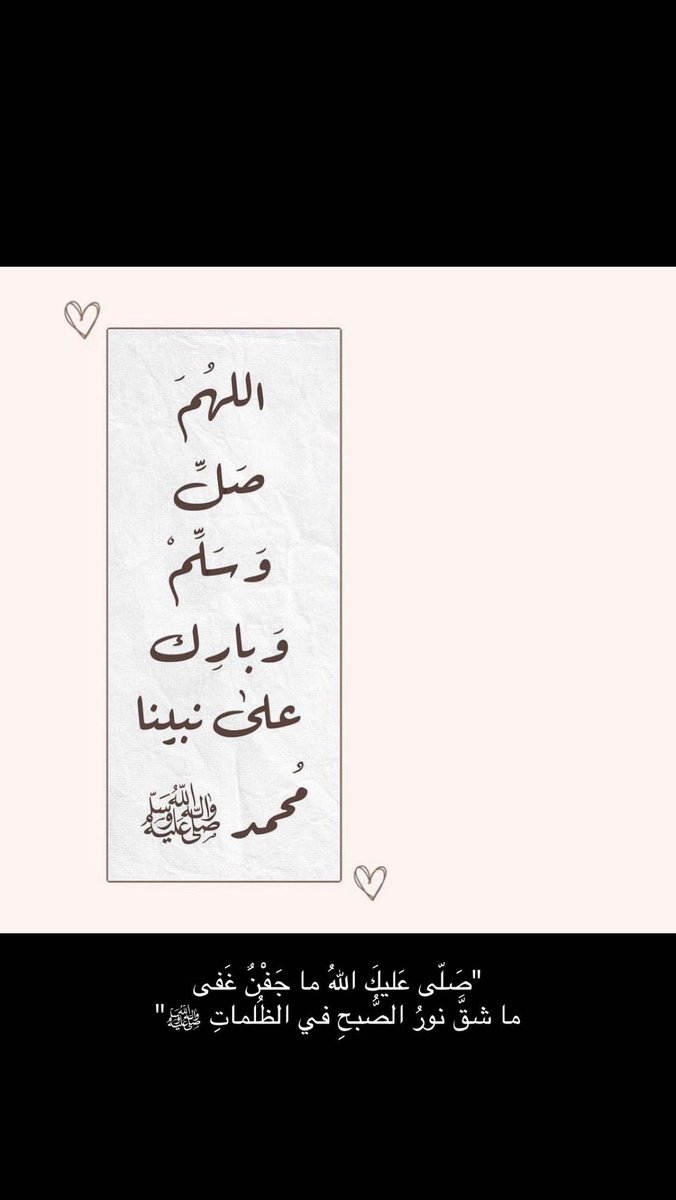 اللهُمَ
صَلِّ
وَسَلِّمْ
وَبارِك
علىٰ نبينا
مُحمد ﷺ
"صَلّى عَليكَ اللهُ ما جَفْنٌ غَفى
ما شقَّ نورُ الصُّبحِ في الظُلماتِ ﷺ"